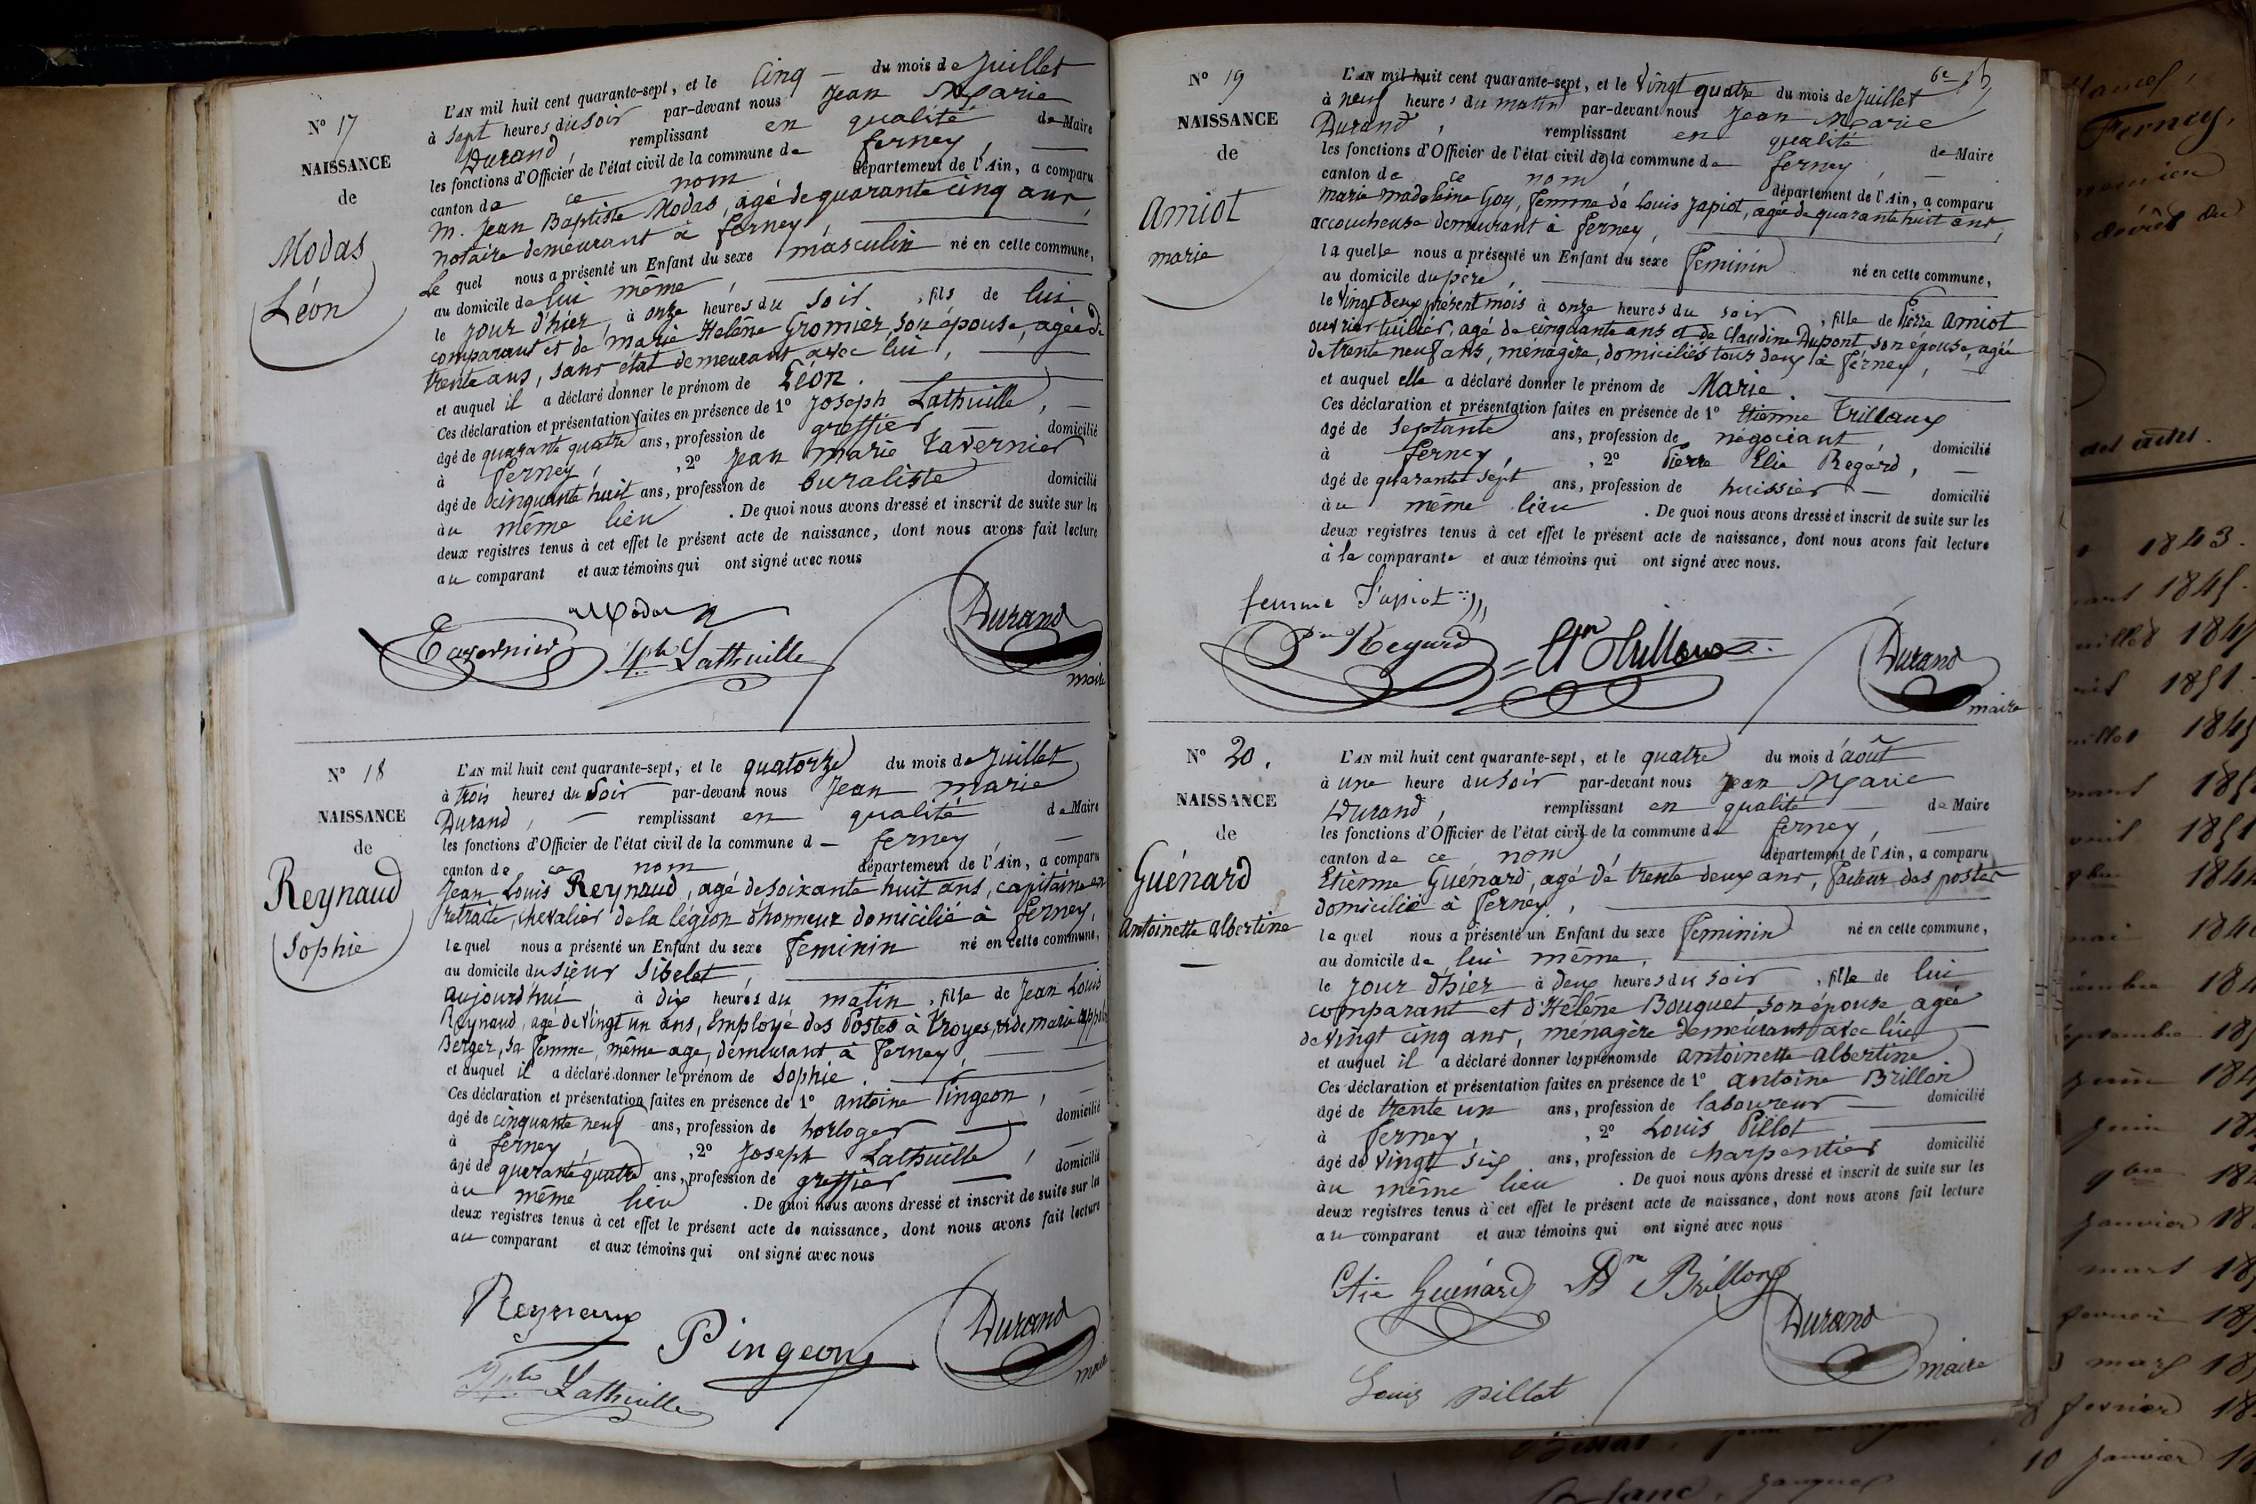 N° 17
NAISSANCE
de
Modas
Léon
L'AN mil huit cent quarante-sept, et le Cinq du mois de Juillet
à sept heures du soir par-devant nous Jean Marie
Durand, remplissant en qualité de Maire
les fonctions d'Officier de l'état civil de la commune de ferney,
canton de ce nom département de l'Ain, a comparu
M. Jean Baptiste Modas, agé de quarante cinq ans,
notaire demeurant à ferney
Le quel nous a présenté un Enfant du sexe masculin né en cette commune,
au domicile de lui même,
le jour d'hier, à onze heures du soir, fils de lui
comparant et de marie Helène Gromier, son épouse, agée de
trente ans, sans état demeurant avec lui,
et auquel il a déclaré donner le prénom de Léon.
Ces déclaration et présentation faites en présence de 1° Joseph Lathuille,
âgé de quarante quatre ans, profession de greffier domicilié
à ferney, , 2° Jean marie Tavernier
âgé de cinquante huit ans, profession de buraliste domicilié
à u même lieu . De quoi nous avons dressé et inscrit de suite sur les
deux registres tenus à cet effet le présent acte de naissance, dont nous avons fait lecture
au comparant et aux témoins qui ont signé avec nous
Modas
Durand
Tavernier Jph Lathuille
maire
N° 18
NAISSANCE
de
Reynaud
Sophie
L'AN mil huit cent quarante-sept, et le quatorze du mois de Juillet
à trois heures du soir par-devant nous Jean marie
Durand, remplissant en qualité de Maire
les fonctions d'Officier de l'état civil de la commune d ferney,
canton de ce nom département de l'Ain, a comparu
Jean Louis Reynaud, agé de soixante huit ans, capitaine en
retraite, chevalier de la légion d'honneur domicilié à ferney,
le quel nous a présenté un Enfant du sexe feminin né en cette commune,
au domicile du sieur Sibelet,
aujourd'hui, à dix heures du matin, fille de Jean Louis
Reynaud, agé de vingt un ans, Employé des Postes à Troyes, et de marie
Berger, sa femme, même age, demeurant à ferney,
et auquel il a déclaré donner le prénom de Sophie.
Ces déclaration et présentation faites en présence de 1° antoine Pingeon,
âgé de cinquante neuf ans, profession de horloger domicilié
à ferney , 2° Joseph Lathuille,
âgé de quarante quatre ans, profession de greffier domicilié
à u même lieu . De quoi nous avons dressé et inscrit de suite sur les
deux registres tenus à cet effet le présent acte de naissance, dont nous avons fait lecture
au comparant et aux témoins qui ont signé avec nous
Reynaud
Pingeon
Durand
maire
Jph Lathuille
6e
N° 19
NAISSANCE
de
Amiot
marie
L'AN mil huit cent quarante-sept, et le vingt quatre du mois de Juillet
à neuf heures du matin par-devant nous Jean Marie
Durand, remplissant en qualité de Maire
les fonctions d'Officier de l'état civil de la commune de ferney,
canton de ce nom département de l'Ain, a comparu
marie madeleine Goy, femme de Louis Japiot, agée de quarante huit ans,
accoucheuse demeurant à ferney,
la quelle nous a présenté un Enfant du sexe feminin né en cette commune,
au domicile du père,
le vingt deux présent mois à onze heures du soir, fille de Pierre Amiot
ouvrier tuilier, agé de cinquante ans et de Claudine Dupont son épouse, agée
de trente neuf ans, ménagère, domiciliés tous deux à ferney,
et auquel elle a déclaré donner le prénom de Marie.
Ces déclaration et présentation faites en présence de 1° Etienne Trilloux
âgé de septante ans, profession de négociant, domicilié
à ferney, , 2° Pierre Elie Regard,
âgé de quarante sept ans, profession de huissier domicilié
à u même lieu . De quoi nous avons dressé et inscrit de suite sur les
deux registres tenus à cet effet le présent acte de naissance, dont nous avons fait lecture
à la comparante et aux témoins qui ont signé avec nous.
femme Japiot
Regard
Durand
maire
N° 20.
NAISSANCE
de
Guénard
antoinette albertine
L'AN mil huit cent quarante-sept, et le quatre du mois d'août
à une heure du soir par-devant nous Jean Marie
Durand, remplissant en qualité de Maire
les fonctions d'Officier de l'état civil de la commune de ferney,
canton de ce nom département de l'Ain, a comparu
Etienne Guénard, agé de trente deux ans, facteur des postes
domicilié à ferney,
le quel nous a présenté un Enfant du sexe feminin né en cette commune,
au domicile de lui même,
le jour d'hier à deux heures du soir, fille de lui
comparant et d'Hélène Bouquet son épouse agée
de vingt cinq ans, ménagère demeurant avec lui
et auquel il a déclaré donner les prénoms de antoinette albertine
Ces déclaration et présentation faites en présence de 1° antoine Brillon
âgé de trente un ans, profession de laboureur domicilié
à ferney, , 2° Louis Pillot
âgé de vingt six ans, profession de charpentier domicilié
à u même lieu . De quoi nous avons dressé et inscrit de suite sur les
deux registres tenus à cet effet le présent acte de naissance, dont nous avons fait lecture
au comparant et aux témoins qui ont signé avec nous
Etie Guénard Brillon
Durand
maire
Louis pillot
Ferney,
1843.
1845.
1851
1851
janvier 18
mars 18
mars 18
fevrier 18
10 janvier 18